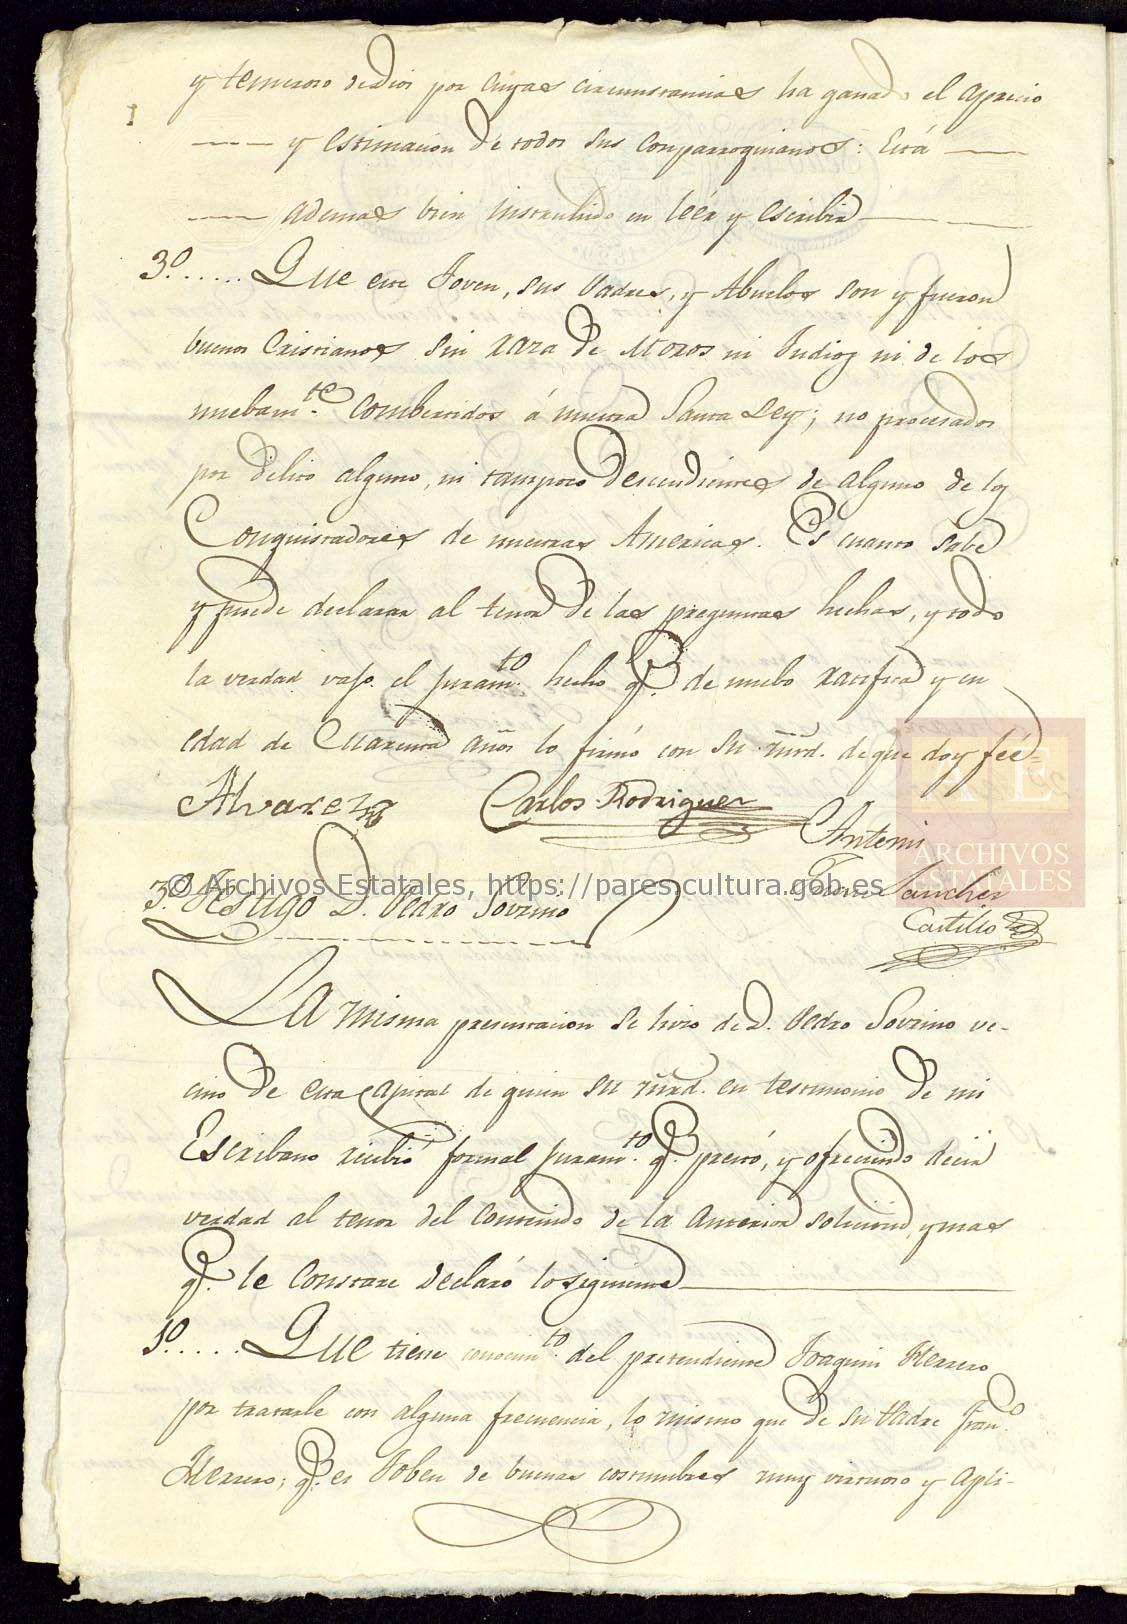 y temeroso de dios por cuyas circunstancias ha ganado el aprecio
y estimacion de todos sus comparroquianos: Está
ademas bien instruhido en leér y escribir
3º..... Que este Joven, sus Padres, y Abuelos son y fueron
buenos Cristianos sin raza de Moros ni Judios ni de los
nuebamte. combertidos á nuestra Santa Ley; no procesados
por delito alguno, ni tampoco descendientes de alguno de los
Conquistadores de nuestras Americas. Es cuanto sabe
y puede declarar al tenor de las preguntas hechas, y todo
la verdad vajo el juramto. hecho q. de nuebo ratifica y en
edad de Cuarenta años lo firmó con su mrd. de que doy feé=
Alvarez
Carlos Rodriguez
Antemi
Sanchez
Castillo
3º. Testigo D. Pedro Sovrino
La misma presentacion se hizo de D. Pedro Sovrino ve-
cino de esta Capital de quien su mrd. en testimonio de mi
Escribano recibió formal juramto. q. prestó, y ofreciendo decir
verdad al tenor del contenido de la anterior solicitud, y mas
q. le constare declaró lo siguiente
1º..... Que tiene conocimto. del pretendiente Joaquin Herrero
por tratarle con alguna frecuencia, lo mismo que de su Padre Franco.
Herrero; q. es Joben de buenas costumbres muy virtuoso y apli-
© Archivos Estatales, https://pares.cultura.gob.es
AE
ARCHIVOS
ESTATALES